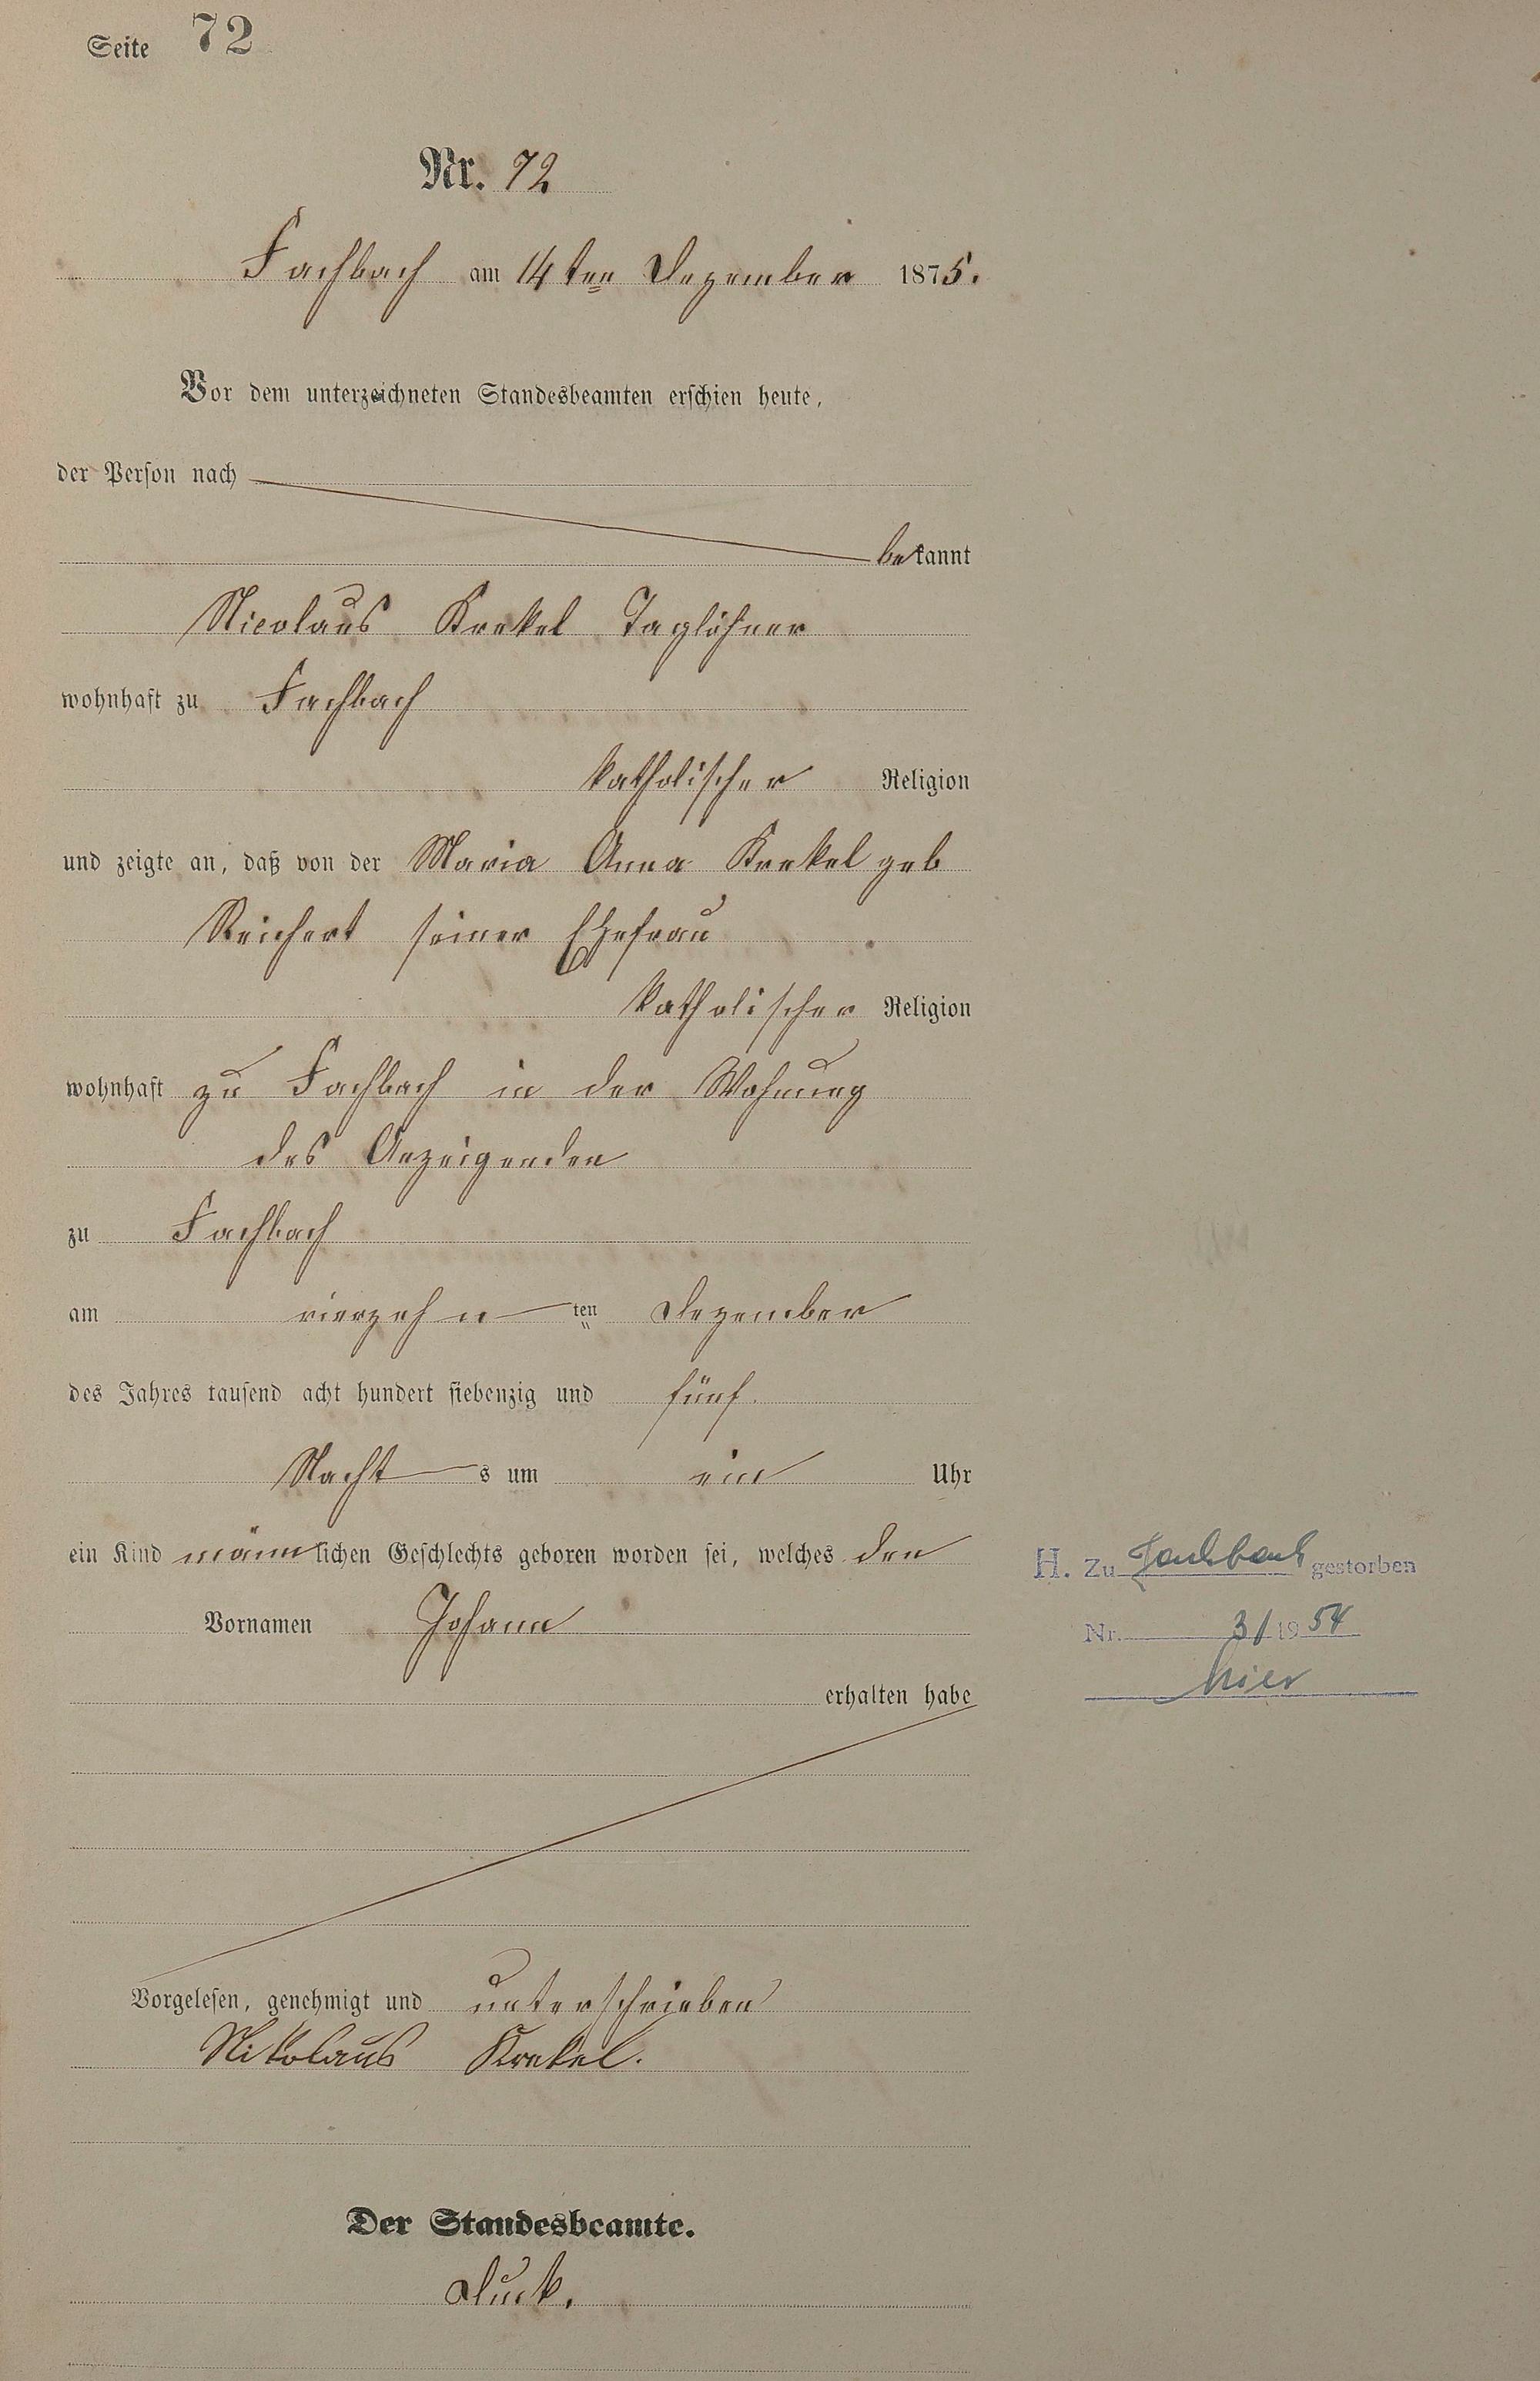 Seite 72
Nr. 72
Fachbach am 14ten Dezember 1875.
Vor dem unterzeichneten Standesbeamten erschien heute,
der Person nach
bekannt
Nicolaus Krekel Taglöhner
wohnhaft zu Fachbach
katholischer Religion
und zeigte an, daß von der Maria Anna Krekel geb
Reichert seiner Ehefrau
katholischer Religion
wohnhaft zu Fachbach in der Wohnung
des Anzeigenden
zu Fachbach
am vierzehnten Dezember
des Jahres tausend acht hundert siebenzig und fünf
Nachts um ein Uhr
ein Kind männlichen Geschlechts geboren worden sei, welches den
Vornamen Johann
erhalten habe
Vorgelesen, genehmigt und unterschrieben
Nikolaus Krekel.
Der Standesbeamte.
H. Zu Fachbach gestorben
Nr. 3/1954
hier